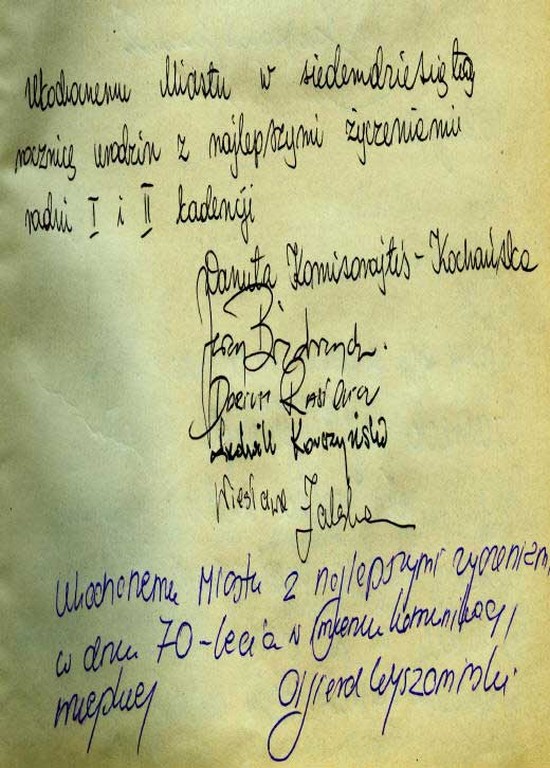 Ukochanemu Miastu w siedemdziesiątą
rocznicę urodzin z najlepszymi życzeniami
radni I i II kadencji
Danuta Komisorajtis-Kochańska
Jerzy
Dariusz
Ludwik Korczyński
Wiesława
Ukochanemu Miastu z najlepszymi życzeniami
w dniu 70-lecia w imieniu komunikacji
miejskiej Olgierd Wyszomirski